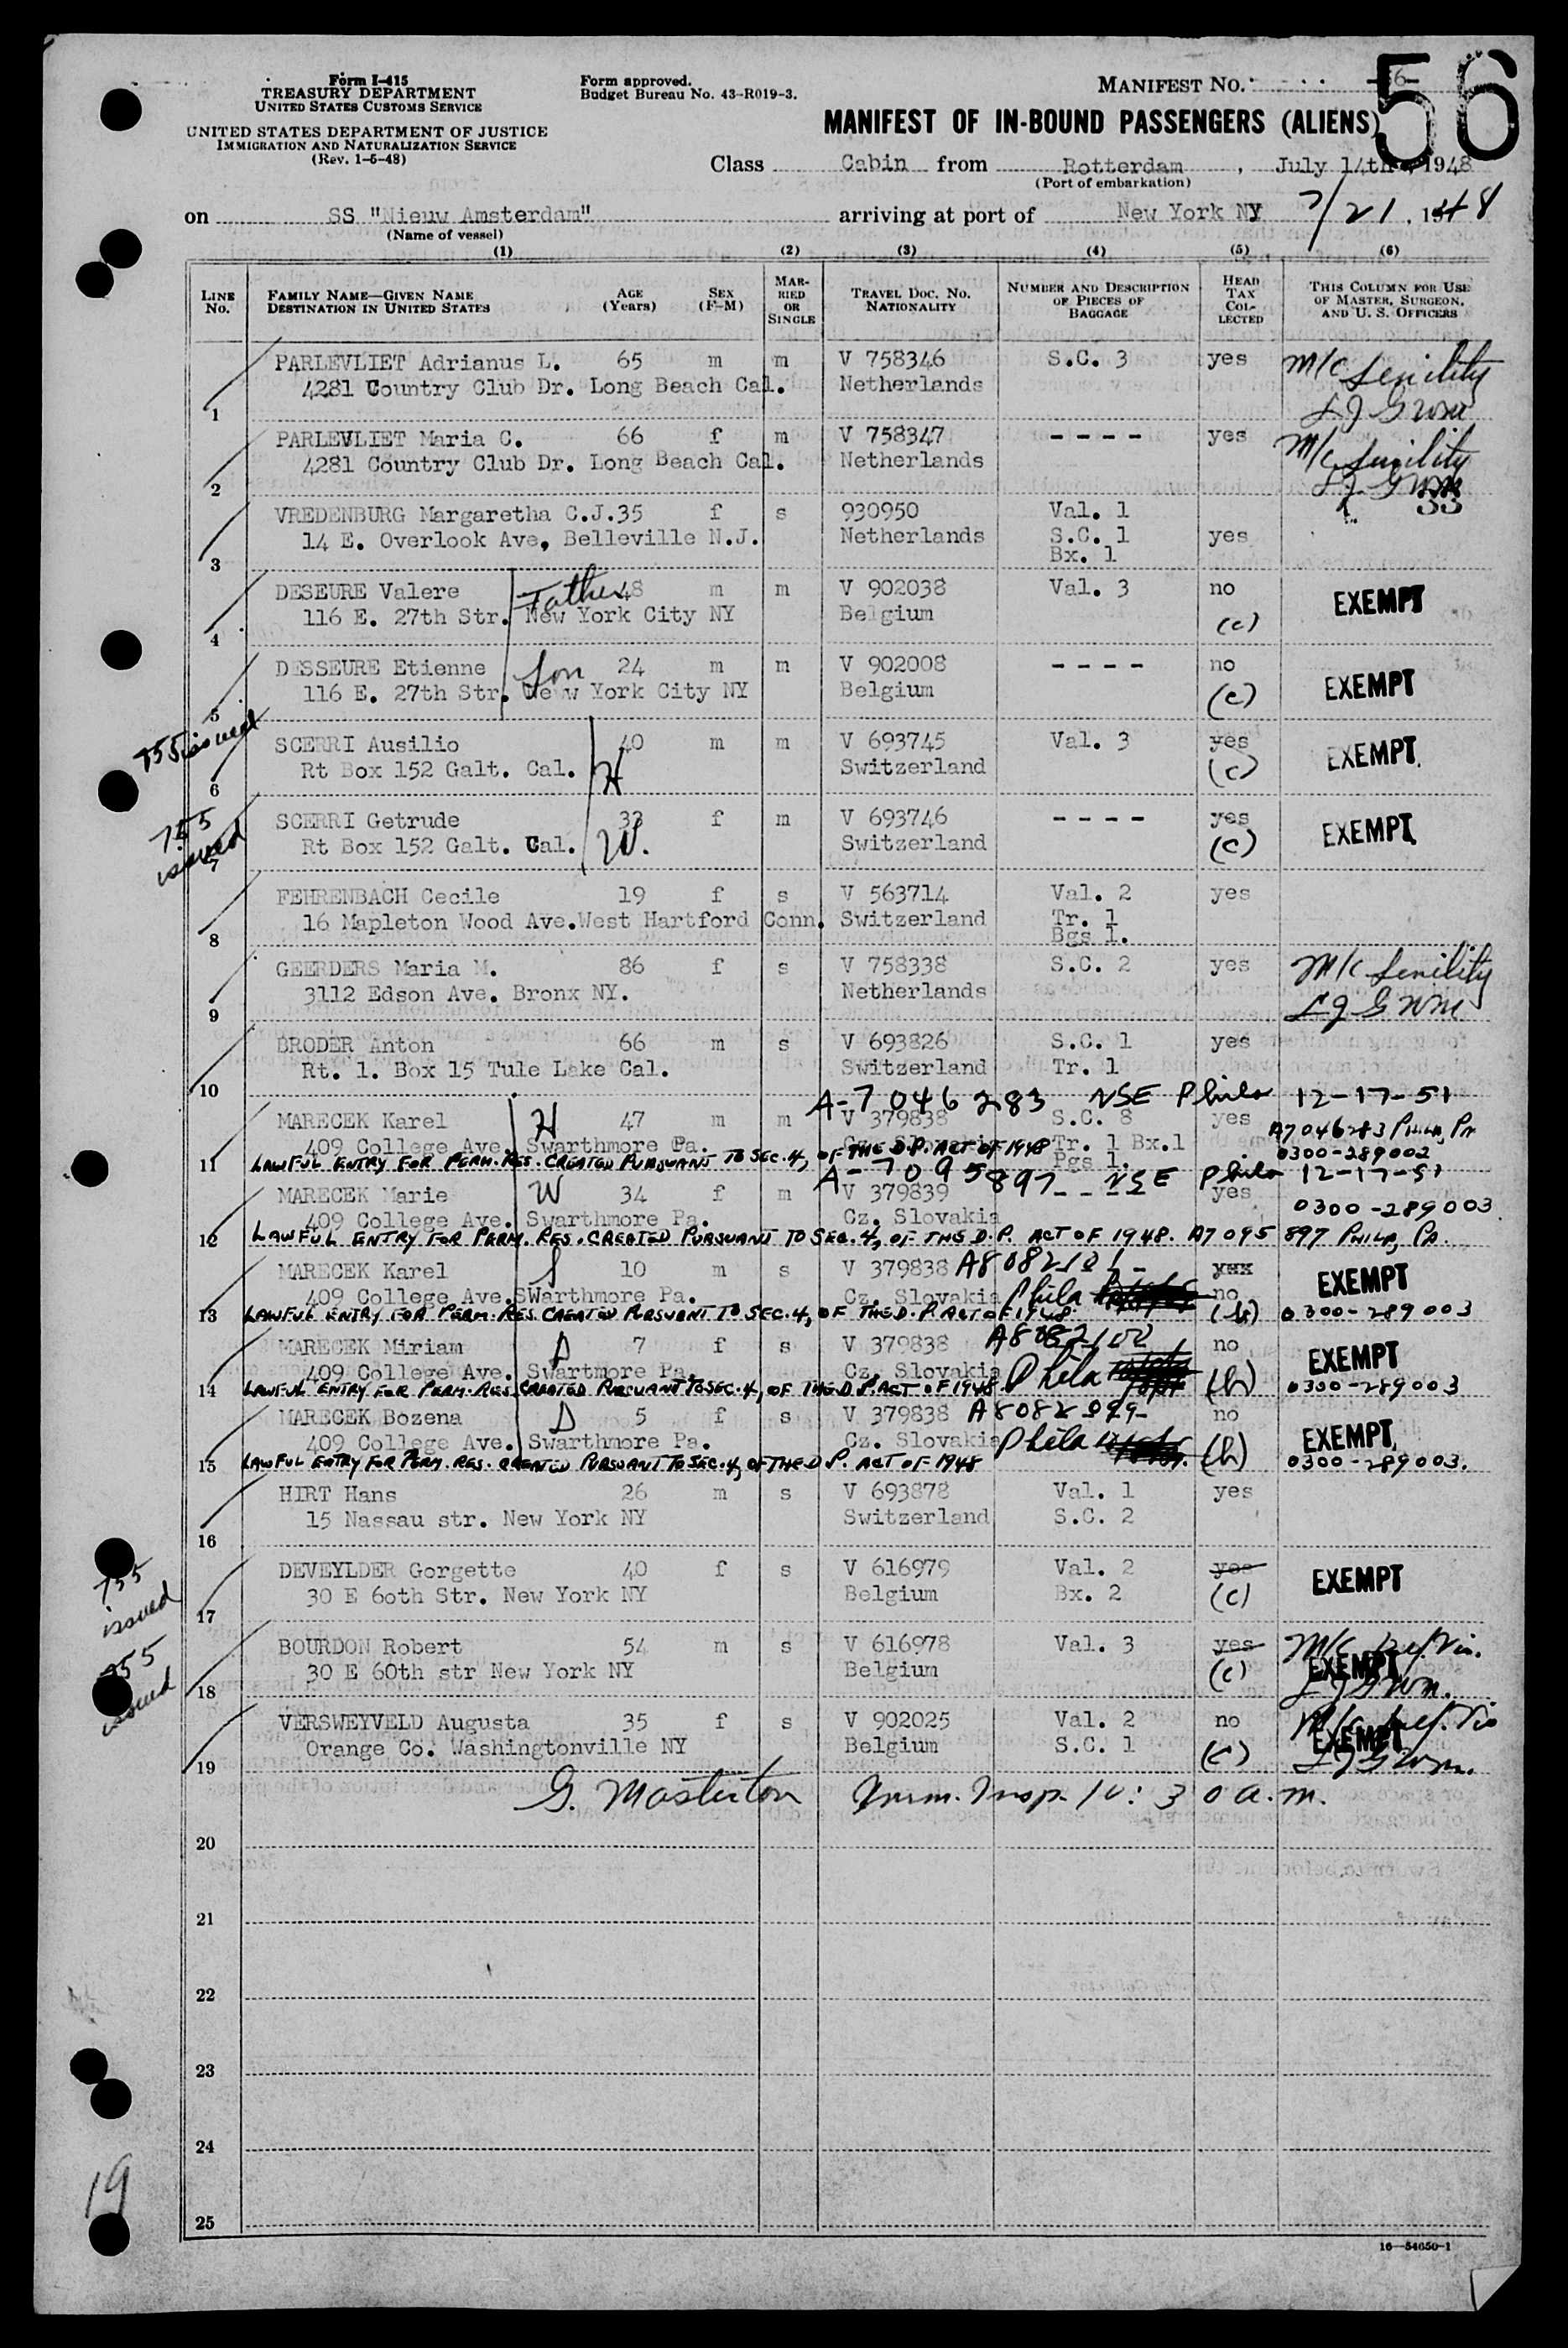 Form I-415
TREASURY DEPARTMENT
UNITED STATES CUSTOMS SERVICE
UNITED STATES DEPARTMENT OF JUSTICE
IMMIGRATION AND NATURALIZATION SERVICE
(Rev. 1-6-48)
Form approved.
Budget Bureau No. 43-R019-3.
MANIFEST NO. 56
MANIFEST OF IN-BOUND PASSENGERS (ALIENS)
Class Cabin from Rotterdam, July 14th, 1948
(Port of embarkation)
on SS "Nieuw Amsterdam" arriving at port of New York NY 7/21, 1948
(Name of vessel)
(1) (2) (3) (4) (5) (6)
LINE No. FAMILY NAME—GIVEN NAME DESTINATION IN UNITED STATES AGE (Years) SEX (F-M) MARRIED OR SINGLE TRAVEL DOC. NO. NATIONALITY NUMBER AND DESCRIPTION OF PIECES OF BAGGAGE HEAD TAX COLLECTED THIS COLUMN FOR USE OF MASTER, SURGEON, AND U. S. OFFICERS
PARLEVLIET Adrianus L. 65 m m V 758346 S.C. 3 yes M/C Senility
4281 Country Club Dr. Long Beach Cal. Netherlands
1
PARLEVLIET Maria C. 66 f m V 758347 - - - - yes M/C Senility
4281 Country Club Dr. Long Beach Cal. Netherlands
2
VREDENBURG Margaretha C.J. 35 f s 930950 Val. 1
14 E. Overlook Ave, Belleville N.J. Netherlands S.C. 1 yes
3 Bx. 1
DESEURE Valere Father 48 m m V 902038 Val. 3 no EXEMPT
116 E. 27th Str. New York City NY Belgium (c)
4
DESSEURE Etienne Son 24 m m V 902008 - - - - no EXEMPT
116 E. 27th Str. New York City NY Belgium (c)
5
755 issued
SCERRI Ausilio 40 m m V 693745 Val. 3 yes EXEMPT
Rt Box 152 Galt. Cal. H Switzerland (c)
6
755 issued
SCERRI Getrude 33 f m V 693746 - - - - yes EXEMPT
Rt Box 152 Galt. Cal. W. Switzerland (c)
7
FEHRENBACH Cecile 19 f s V 563714 Val. 2 yes
16 Mapleton Wood Ave.West Hartford Conn. Switzerland Tr. 1
8 Bgs 1.
GEERDERS Maria M. 86 f s V 758338 S.C. 2 yes M/C Senility
3112 Edson Ave. Bronx NY. Netherlands
9
BRODER Anton 66 m s V 693826 S.C. 1 yes
Rt. 1. Box 15 Tule Lake Cal. Switzerland Tr. 1
10
A-7046283 NSE Phila 12-17-51
MARECEK Karel H 47 m m V 379838 S.C. 8 yes A7046283 PHILA, PA
409 College Ave. Swarthmore Pa. Cz. Slovakia Tr. 1 Bx.1 0300-289002
11 LAWFUL ENTRY FOR PERM. RES. CREATED PURSUANT TO SEC. 4, OF THE D.P. ACT OF 1948 Pgs 1.
A-7095897 NSE Phila 12-17-51
MARECEK Marie W 34 f m V 379839 - - - yes 0300-289003
409 College Ave. Swarthmore Pa. Cz. Slovakia
12 LAWFUL ENTRY FOR PERM. RES. CREATED PURSUANT TO SEC. 4, OF THE D.P. ACT OF 1948. A7095897 PHILA, PA.
MARECEK Karel S 10 m s V 379838 A8082101 yes EXEMPT
409 College Ave.SWarthmore Pa. Cz. Slovakia Phila no
13 LAWFUL ENTRY FOR PERM. RES. CREATED PURSUANT TO SEC. 4, OF THE D.P. ACT OF 1948. (h) 0300-289003
MARECEK Miriam D 7 f s V 379838 A8082100 no EXEMPT
409 College Ave. Swartmore Pa. Cz. Slovakia Phila (h)
14 LAWFUL ENTRY FOR PERM. RES. CREATED PURSUANT TO SEC. 4, OF THE D.P. ACT OF 1948 0300-289003
MARECEK Bozena D 5 f s V 379838 A8082099 no EXEMPT
409 College Ave. Swarthmore Pa. Cz. Slovakia Phila (h)
15 LAWFUL ENTRY FOR PERM. RES. CREATED PURSUANT TO SEC. 4, OF THE D.P. ACT OF 1948 0300-289003.
HIRT Hans 26 m s V 693878 Val. 1 yes
15 Nassau str. New York NY Switzerland S.C. 2
16
755 issued
DEVEYLDER Gorgette 40 f s V 616979 Val. 2 yes EXEMPT
30 E 6oth Str. New York NY Belgium Bx. 2 (c)
17
755 issued
BOURDON Robert 54 m s V 616978 Val. 3 yes M/C
30 E 60th str New York NY Belgium (c) EXEMPT
18
VERSWEYVELD Augusta 35 f s V 902025 Val. 2 no M/C
Orange Co. Washingtonville NY Belgium S.C. 1 (c) EXEMPT
19
G. Masterton Imm. Insp. 10:30 a.m.
20
21
22
23
24
25
19
16—54650-1